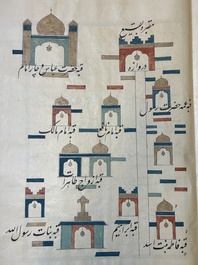 دروازه
قبه حضرت عباس و چهار امام
قبه حضرت رسول
قبه امام نافع
قبه امام مالک
قبه ازواج طاهرات
قبه ابراهیم
قبه بنات رسول الله
قبه فاطمه بنت اسد